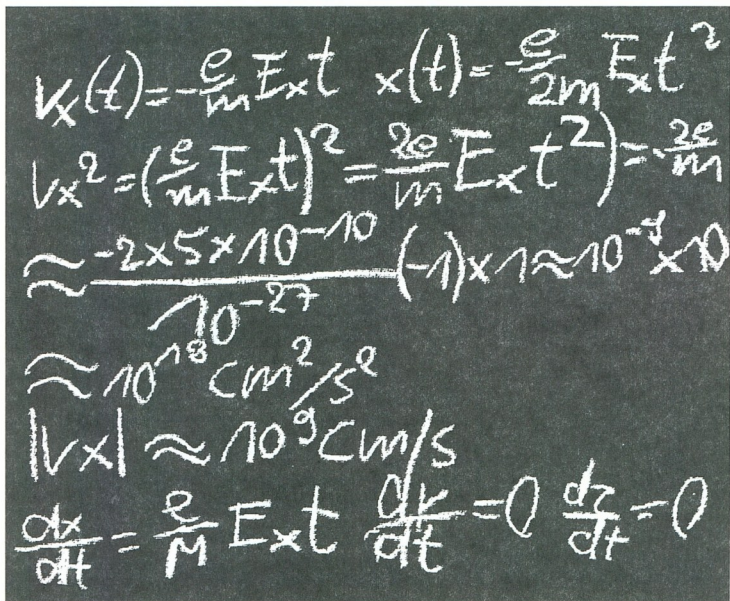 vx(t)=-e/m Ext x(t)=-e/2m Ext²
vx²=(e/m Ext)²=2e/m Ext²)=-2e/m
≈-2×5×10⁻¹⁰/10⁻²⁷(-1)×1≈10⁻⁹×10
≈10¹⁸cm²/s²
|vx|≈10⁹cm/s
dx/dt=e/M Ext dy/dt=0 dz/dt=0